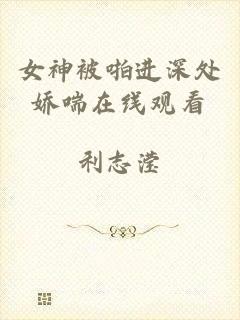 女神被啪进深处
娇喘在线观看
利志滢